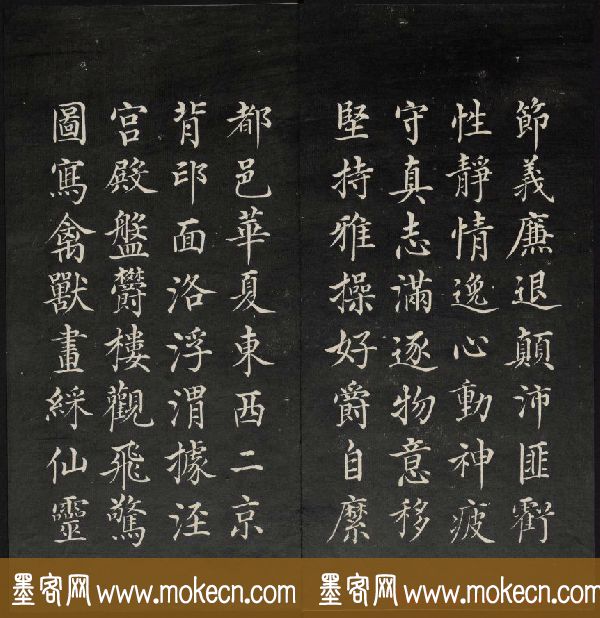 節義廉退顛沛匪虧
性靜情逸心動神疲
守真志滿逐物意移
堅持雅操好爵自縻
都邑華夏東西二京
背邙面洛浮渭據泾
宮殿盤欝樓觀飛驚
圖寫禽獸畫綵仙靈
墨客网 www.mokecn.com 墨客网 www.mokecn.com